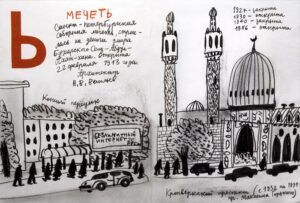 Ь
МЕЧЕТЬ
Санкт-Петербургская
соборная мечеть, строи-
лась на деньги эмира
Бухарского Сеид-Абдул-
Ахат-хана. Открыта
22 февраля 1913 года
Архитектор
Н.В. Васильев
1924 - закрыта
1930 - открыта
1940 - закрыта
1956 - открыта
Конный
БЕСПЛАТНЫЙ
ИНТЕРНЕТ
Кронверкский проспект (с 1932
пр. Максима Горького)